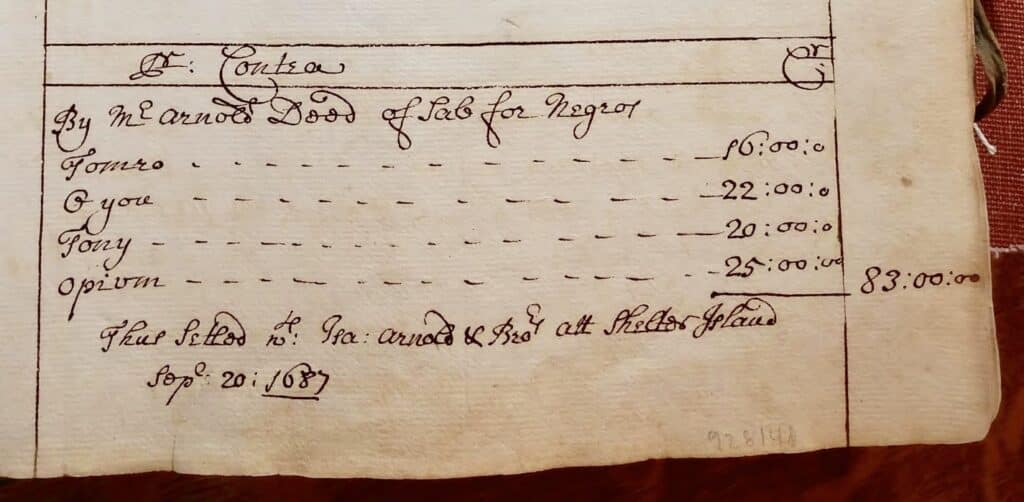 Pr: Contra Cr:
By Mr Arnolds Deed of Sale for Negros
Tomeo - - - - - - - - - - - - 16:00:0
& you - - - - - - - - - - - - 22:00:0
Tony - - - - - - - - - - - - 20:00:0
opium - - - - - - - - - - - - 25:00:00 83:00:00
Thus Setled wth Isa: Arnold & Bros att Shelter Island
Sepr: 20: 1687
928148